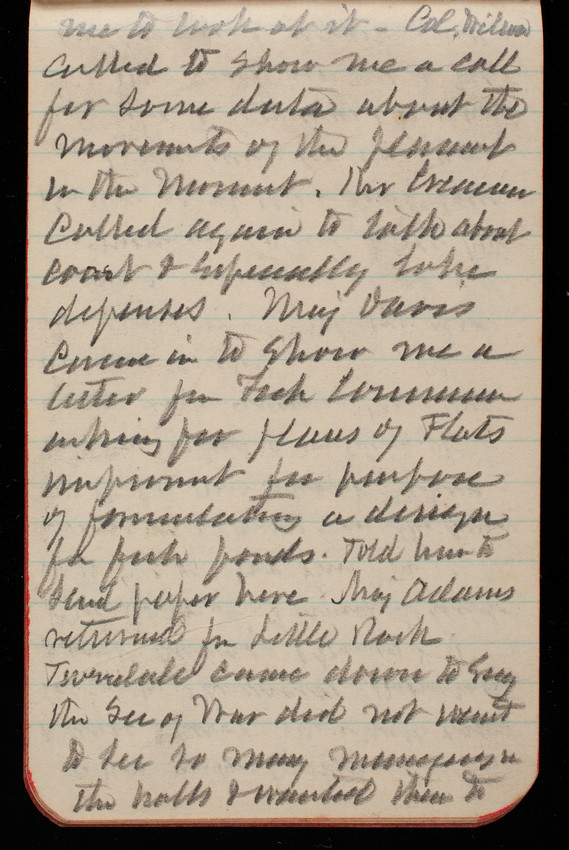 me to look at it - Col. Wilson
called to show me a call
for some data about the
movements of the
in the Monumt.
Called again to talk about
coast & especially lake
defenses. Maj Davis
Came in to show me a
letter fm Fish Commissn
asking for plans of Flats
improvmt for purpose
of formulating a design
for fish ponds. Told him to
send paper here. Maj Adams
returned fm Little Rock.
Tweedale came down to say
the Sec of War did not want
to see so many messengers in
the halls & wanted them to